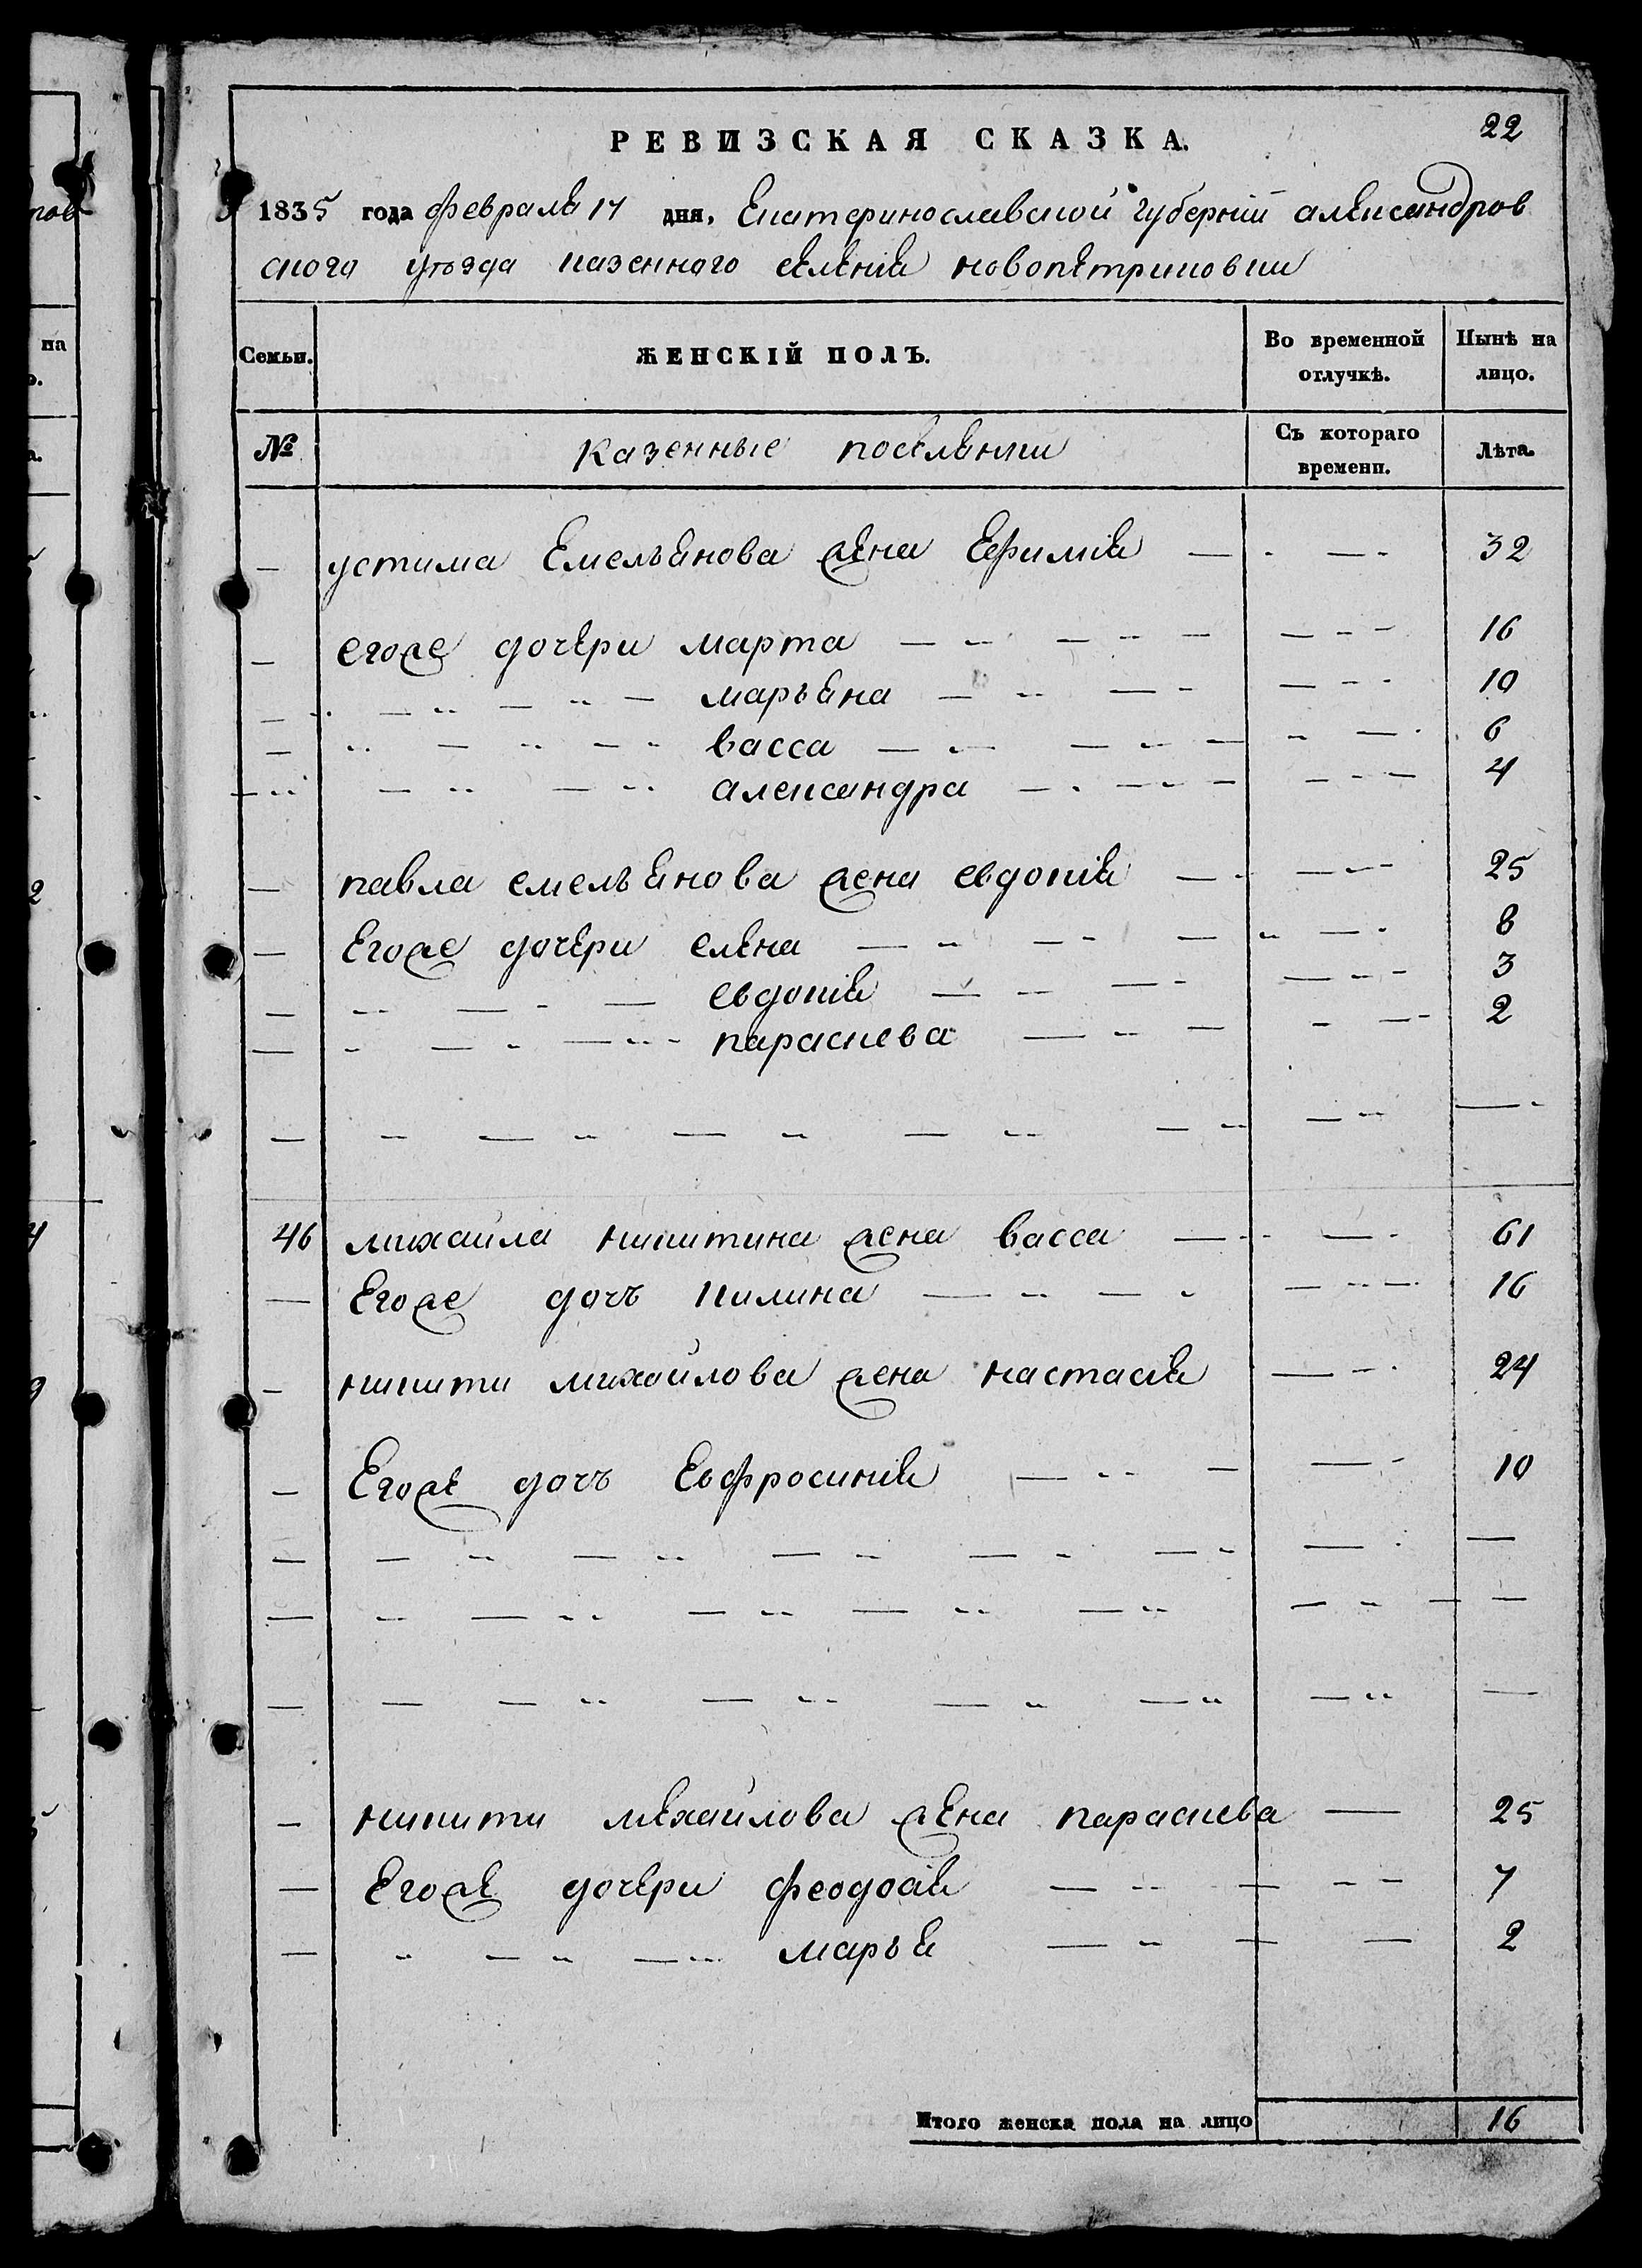 22
РЕВИЗСКАЯ СКАЗКА.
1835 года февраля 17 дня, Екатеринославской губерніи александров
ского уѣзда казенного селенія новопетриковки
Семьи. ЖЕНСКІЙ ПОЛЪ. Во временной отлучкѣ. Нынѣ на лицо.
№ Казенные поселянки Съ котораго времени. Лѣта.
— устима Емельянова жена Ефимия — 32
— егоже дочери марта — 16
— марьяна — 10
— васса — 6
— александра — 4
— павла емельянова жена евдокия — 25
— Егоже дочери елена — 8
— евдокия — 3
— параскева — 2
46 михаила никитина жена васса — 61
— Егоже дочь килина — 16
— никити михайлова жена настасия — 24
— Егоже дочь Ефросиния — 10
— никити михайлова жена параскева — 25
— Егоже дочери феодосия — 7
— марья — 2
Итого женска пола на лицо 16